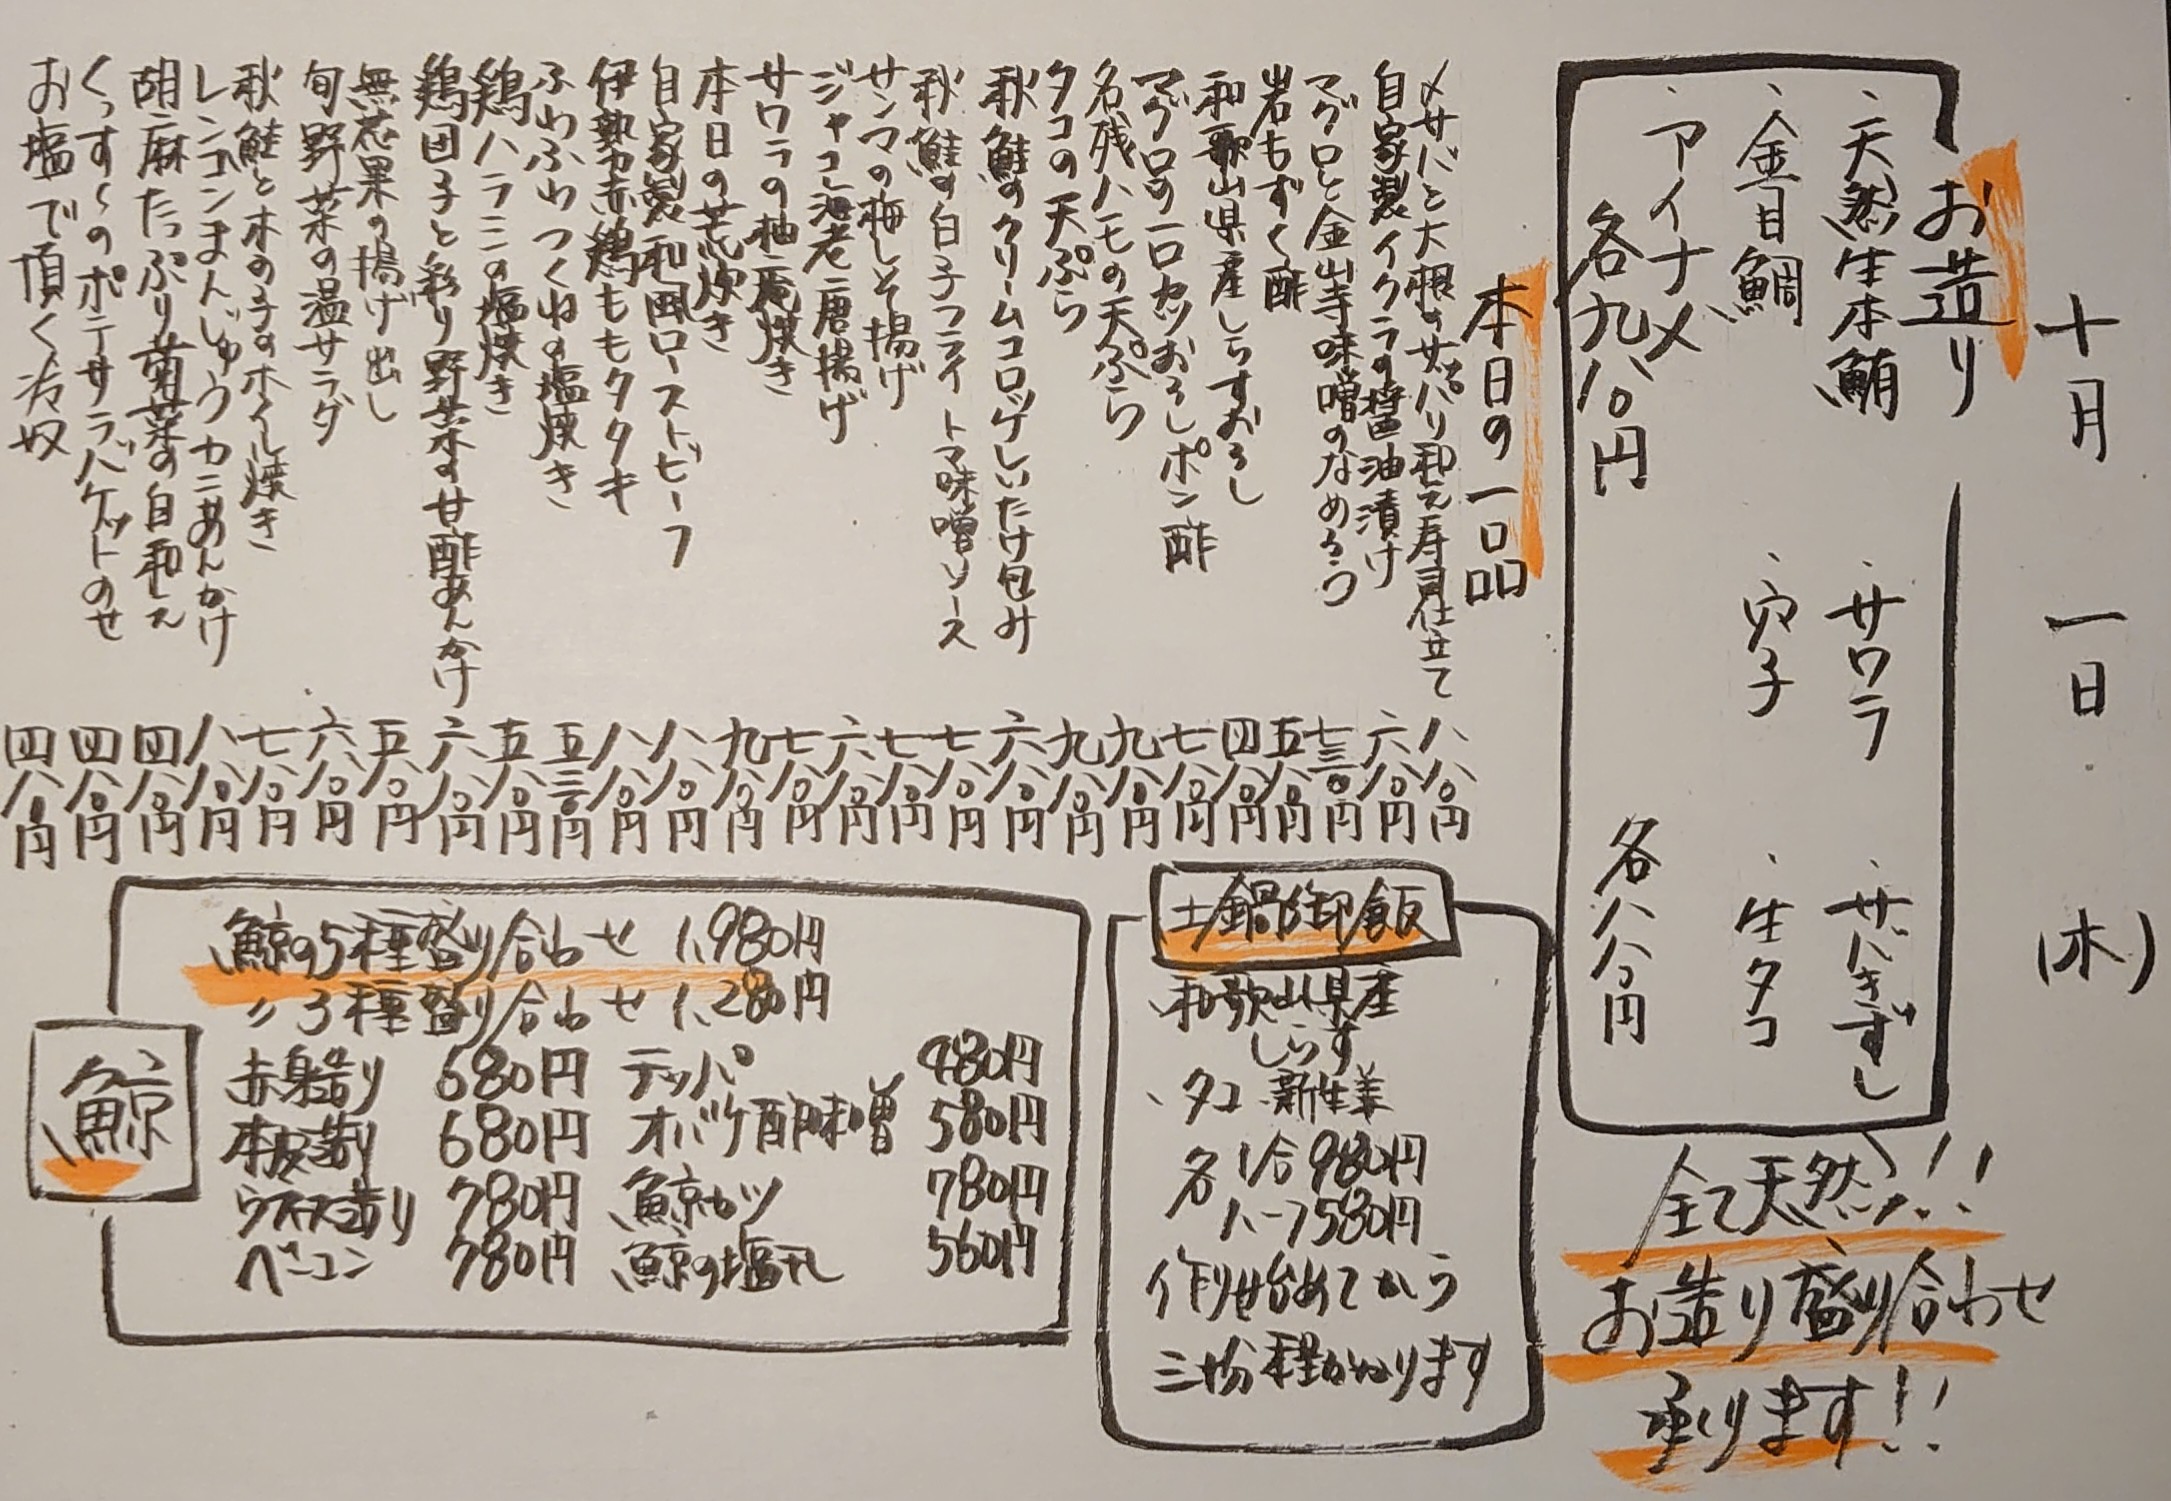 十月 一日 (木)
お造り
・天然生本鮪 ・サワラ ・サバきずし
・金目鯛 ・穴子 ・生タコ
・アイナメ
各九八〇円 各八八〇円
全て天然!!
お造り盛り合わせ
承ります!!
本日の一品
〆サバと大根のサッパリ和え寿司仕立て 八八〇円
自家製イクラの醤油漬け 六八〇円
マグロと金山寺味噌のなめろう 七三〇円
岩もずく酢 五八〇円
和歌山県産しらすおろし 四八〇円
マグロの一口カツおろしポン酢 七八〇円
名残ハモの天ぷら 九八〇円
タコの天ぷら 九八〇円
秋鮭のクリームコロッケしいたけ包み 六八〇円
秋鮭の白子フライトマ味噌ソース 七八〇円
サンマの梅しそ揚げ 七八〇円
ジャコ海老唐揚げ 六八〇円
サワラの柚庵焼き 七八〇円
本日の荒炊き 九八〇円
自家製和風ローストビーフ 八八〇円
伊勢赤鶏ももタタキ 八八〇円
ふわふわつくねの塩焼き 五三〇円
鶏ハラミの塩焼き 五八〇円
鶏団子と彩り野菜の甘酢あんかけ 六八〇円
無花果の揚げ出し 五八〇円
旬野菜の温サラダ 六八〇円
秋鮭と木の子のホイル焼き 七八〇円
レンコンまんじゅうカニあんかけ 八八〇円
胡麻たっぷり菊菜の白和え 四八〇円
くっすーのポテサラバケットのせ 四八〇円
お塩で頂く冷奴 四八〇円
土鍋御飯
・和歌山県産
しらす
・タコ 新生姜
各1合980円
ハーフ580円
作り始めてから
三十分程かかります
鯨
鯨の5種盛り合わせ 1,980円
〃3種盛り合わせ 1,280円
赤身造り 680円 テッパ 480円
本皮造り 680円 オバケ酢味噌 580円
ウネス造り 780円 鯨カツ 780円
ベーコン 780円 鯨の塩タレ 560円